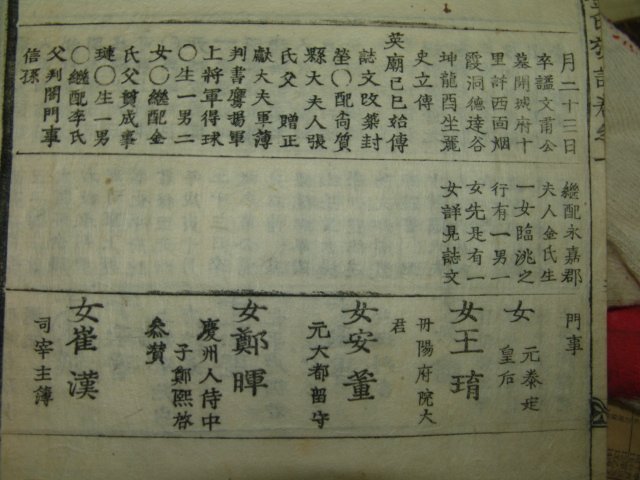 月二十三日
卒諡文肅公
墓開城府十
里許西面烟
霞洞德達谷
坤龍酉坐麗
史立傳
英廟己巳始傳
誌文改築封
塋〇配尙質
縣大夫人張
氏父贈正
獻大夫軍薄
判書鷹揚軍
上將軍得球
〇生一男二
女〇繼配金
氏父贊成事
璉〇生一男
〇繼配李氏
父判閤門事
信孫
繼配永嘉郡
夫人金氏生
一女臨洮之
行有一男一
女先是有一
女詳見誌文
門事
女 元泰定
皇后
女王琦
丹陽府院大
君
女安董
元大都留守
女鄭暉
慶州人侍中
子鄭熙啓
叅贊
女崔漢
司宰主簿